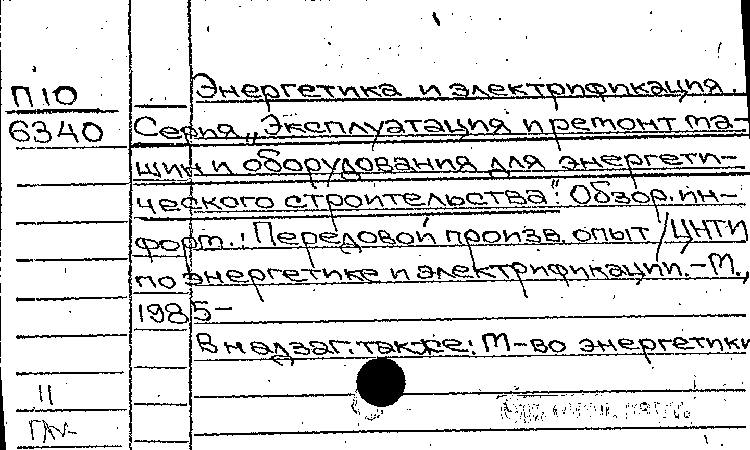 П10
6340
Энергетика и электрификация.
Серия „Эксплуатация и ремонт ма-
шин и оборудования для энергети-
ческого строительства": Обзор. ин-
форм.: Передовой произв. опыт / ЦНТИ
по энергетике и электрификации. – М.,
1985–
В надзаг. также: М-во энергетики
11